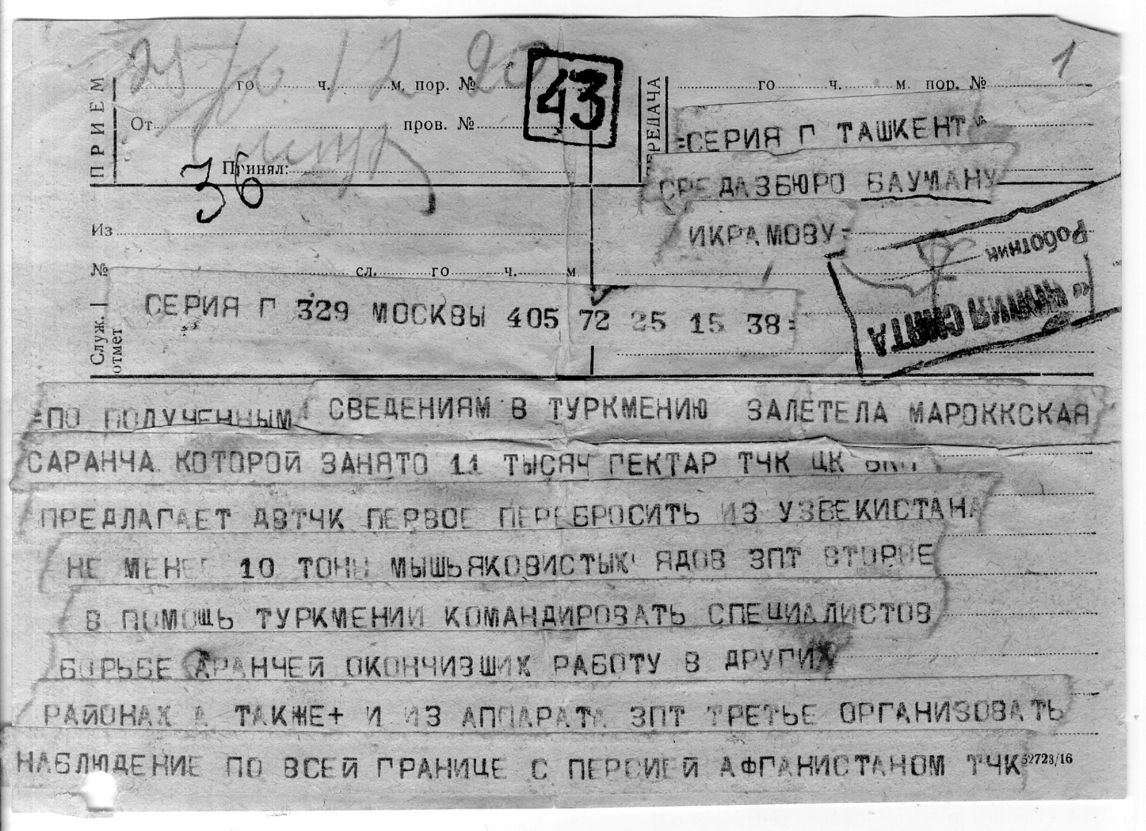 25/6 12 20
1
ПРИЕМ
го ч. м. пор. №
43
ПЕРЕДАЧА
го ч. м. пор. №
От пров. №
=СЕРИЯ Г ТАШКЕНТ
36
Принял:
СРЕДАЗБЮРО БАУМАНУ
Из
ИКРАМОВУ=
Работник
№ сл. го ч. м
Служ. отмет
СЕРИЯ Г 329 МОСКВЫ 405 72 25 15 38=
=ПО ПОЛУЧЕННЫМ СВЕДЕНИЯМ В ТУРКМЕНИЮ ЗАЛЕТЕЛА МАРОККСКАЯ
САРАНЧА КОТОРОЙ ЗАНЯТО 11 ТЫСЯЧ ГЕКТАР ТЧК ЦК ВКП
ПРЕДЛАГАЕТ ДВТЧК ПЕРВОЕ ПЕРЕБРОСИТЬ ИЗ УЗБЕКИСТАНА
НЕ МЕНЕЕ 10 ТОНН МЫШЬЯКОВИСТЫХ ЯДОВ ЗПТ ВТОРОЕ
В ПОМОЩЬ ТУРКМЕНИИ КОМАНДИРОВАТЬ СПЕЦИАЛИСТОВ
БОРЬБЕ АРАНЧЕЙ ОКОНЧИВШИХ РАБОТУ В ДРУГИХ
РАЙОНАХ А ТАКЖЕ+ И ИЗ АППАРАТА ЗПТ ТРЕТЬЕ ОРГАНИЗОВАТЬ
НАБЛЮДЕНИЕ ПО ВСЕЙ ГРАНИЦЕ С ПЕРСИЕЙ АФГАНИСТАНОМ ТЧК
52723/16